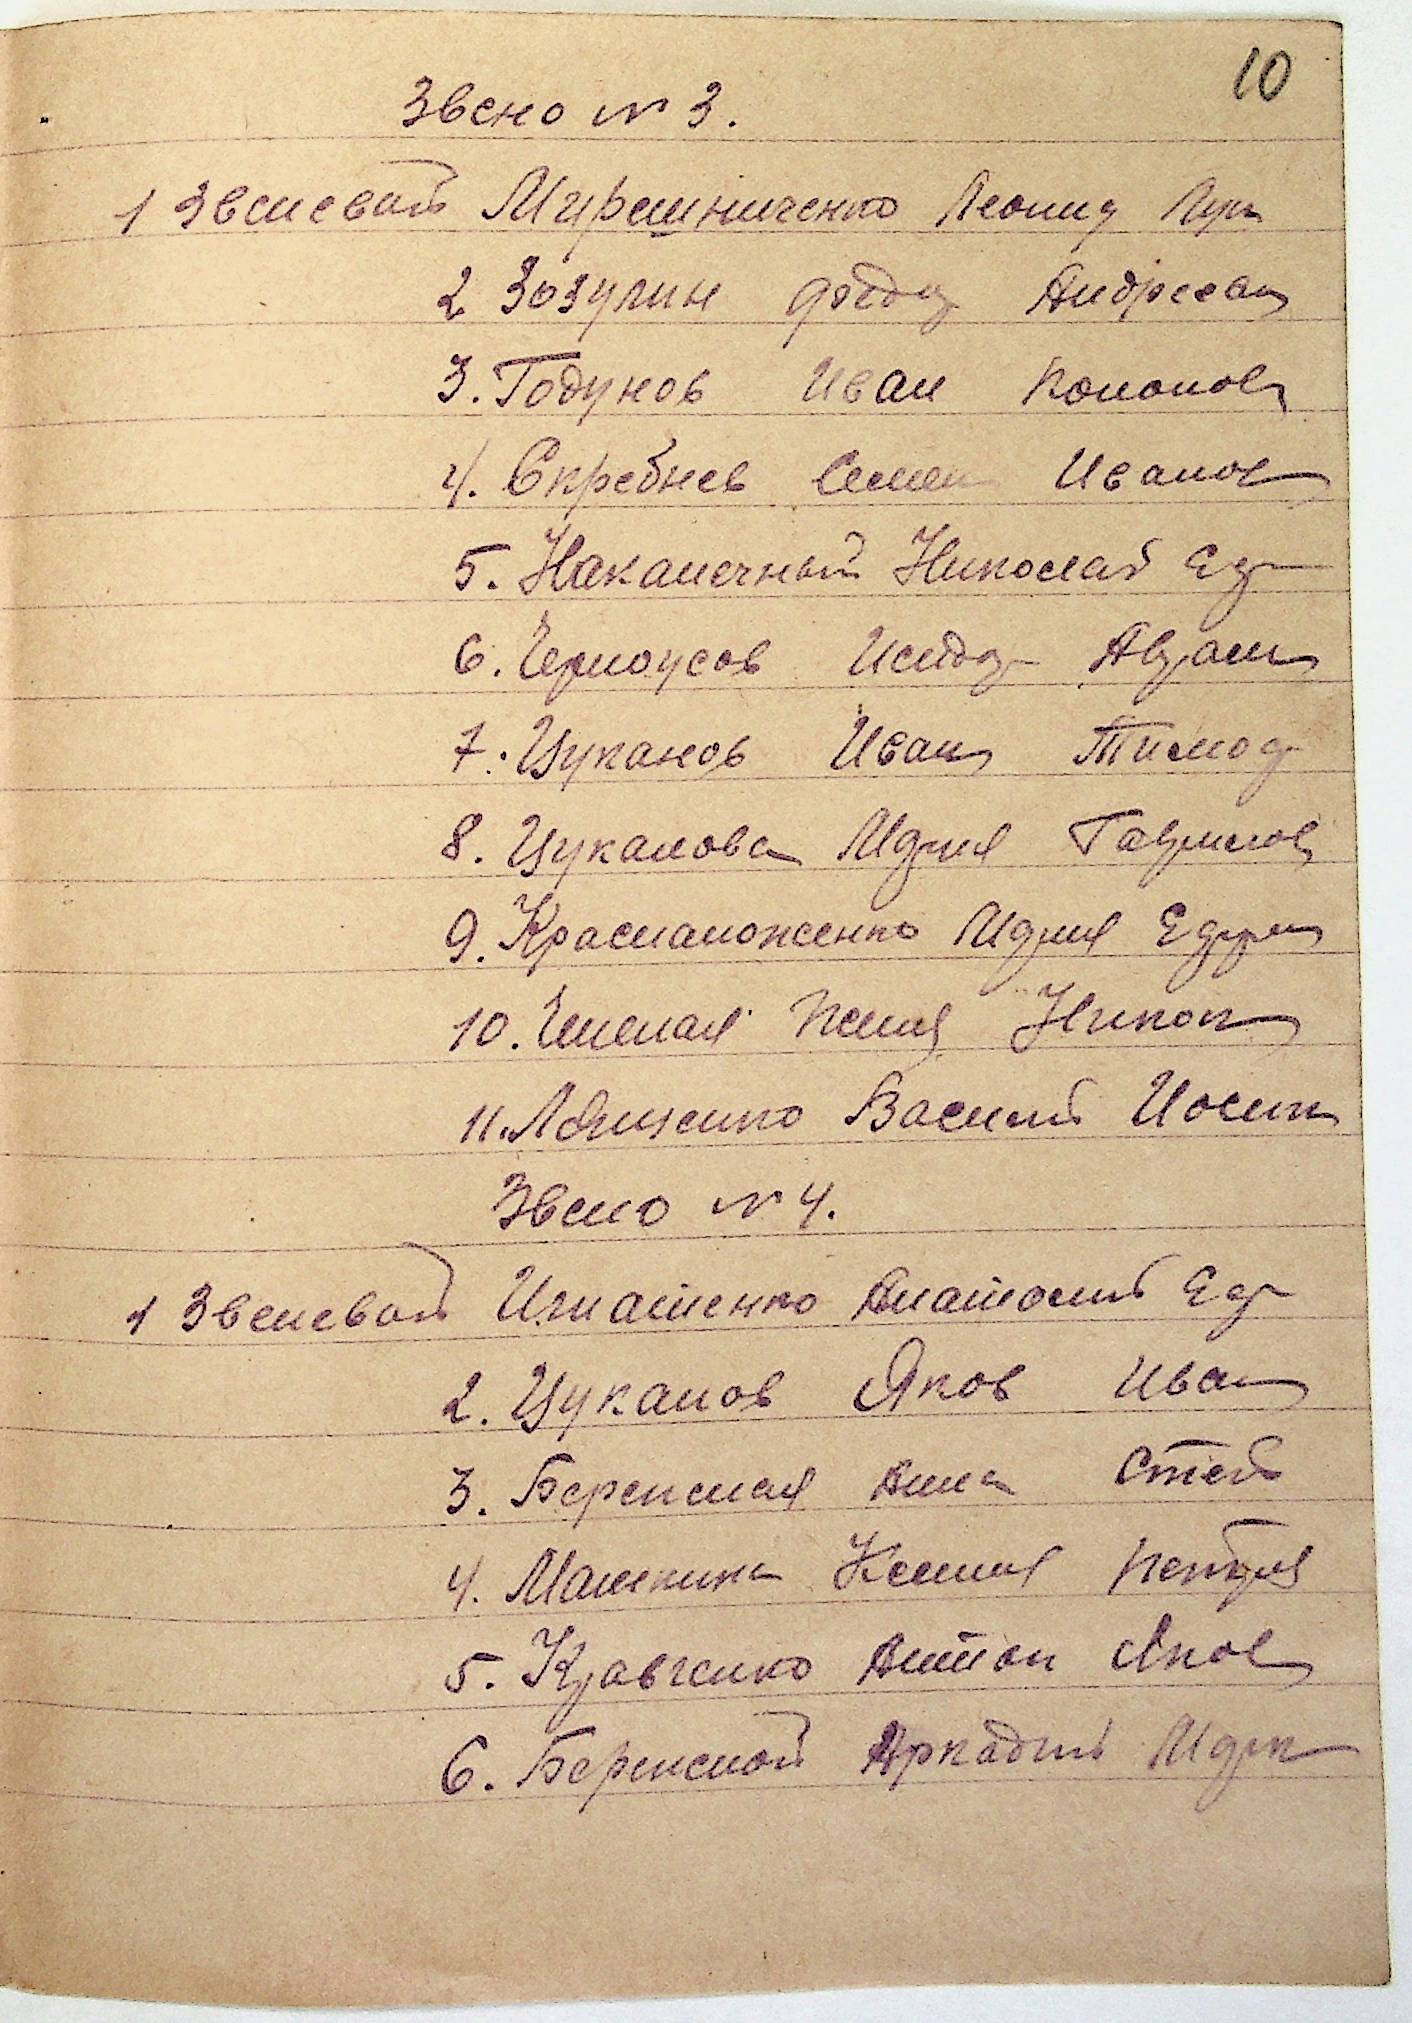 10
Звено № 3.
1 Звеневой Мирошниченко Леонид Лук
2 Зозулин Федор Андреев
3. Годунов Иван Кононов
4. Скребнев Семен Иванов
5. Наконечный Николай Ег
6. Черноусов Исидор Аврам
7. Цуканов Иван Тимоф
8. Цуканова Мария Гаврилов
9. Красноложенко Мария Ефрем
10. Ксения Никол
11. Василий Иосип
Звено № 4.
1 Звеневой Игнатенко Анатолий Ег
2. Цуканов Яков Иван
3. Анна Степ
4. Машкина Ксения Петров
5. Кравченко Антон Яков
6. Аркадий Марк